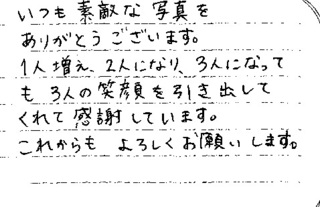 いつも素敵な写真を
ありがとうございます。
1人増え、2人になり、3人になって
も3人の笑顔を引き出して
くれて感謝しています。
これからも よろしくお願いします。